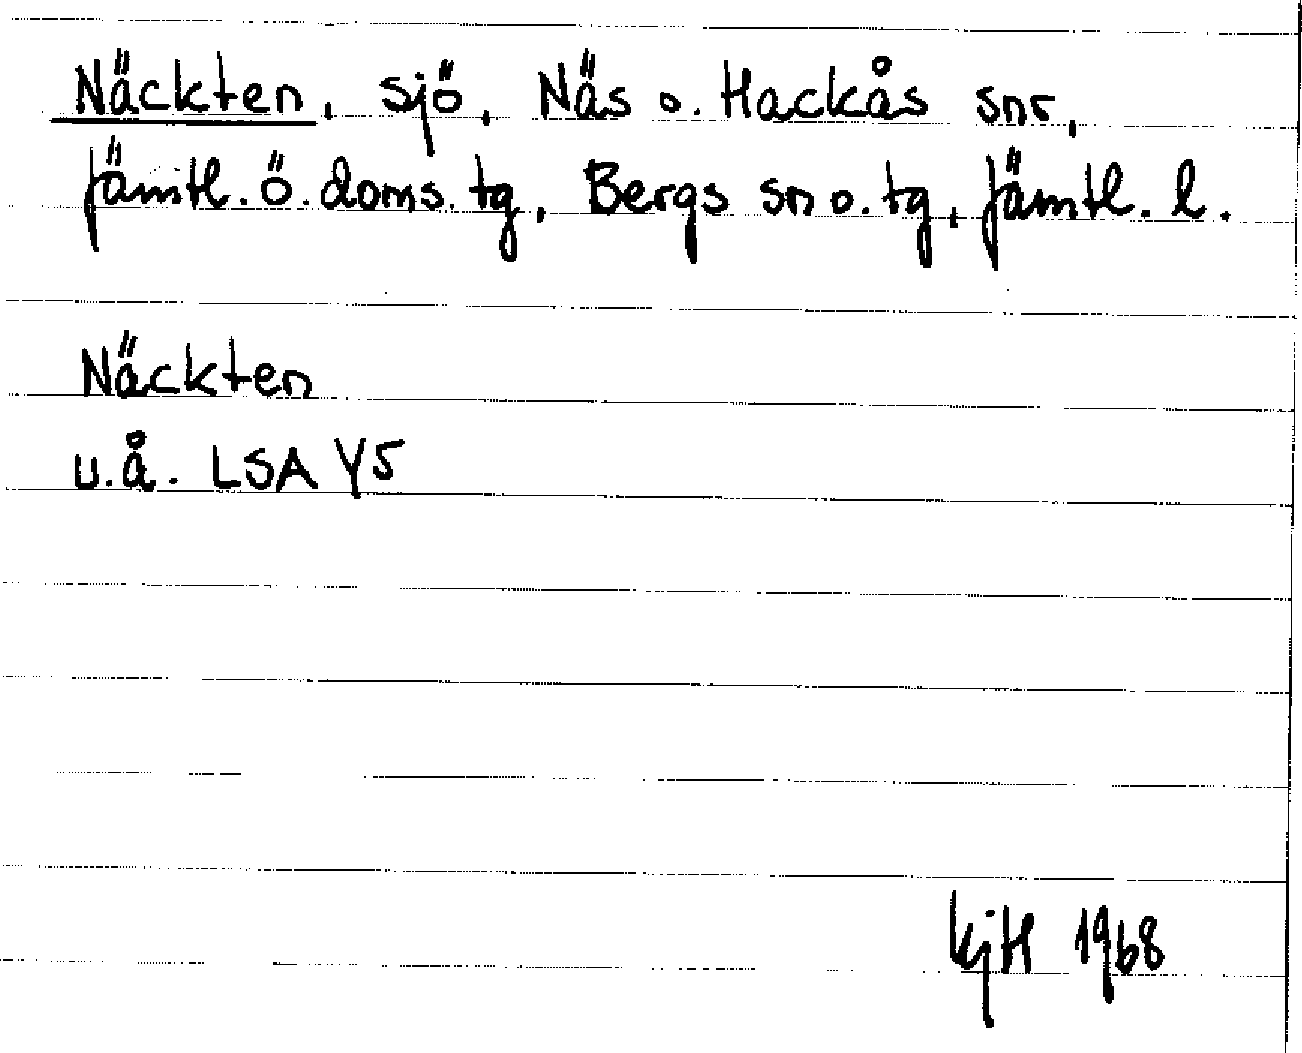 Näckten, sjö, Näs o. Hackås snr,
Jämtl. ö. doms. tg, Bergs sn o. tg, Jämtl. l.
Näckten
u.å. LSA Y5
KjH 1968